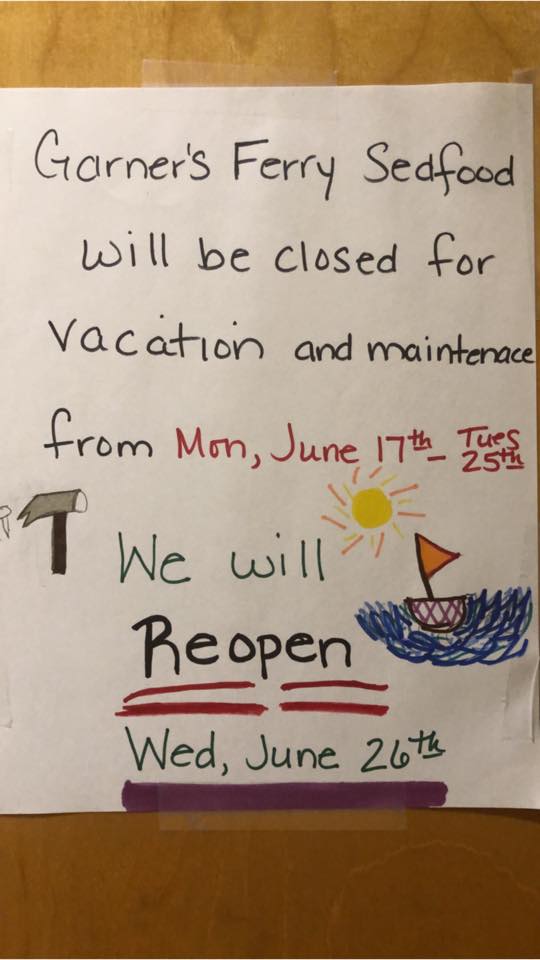 Garner's Ferry Seafood
will be closed for
vacation and maintenace
from Mon, June 17th - Tues 25th
We will
Reopen
Wed, June 26th